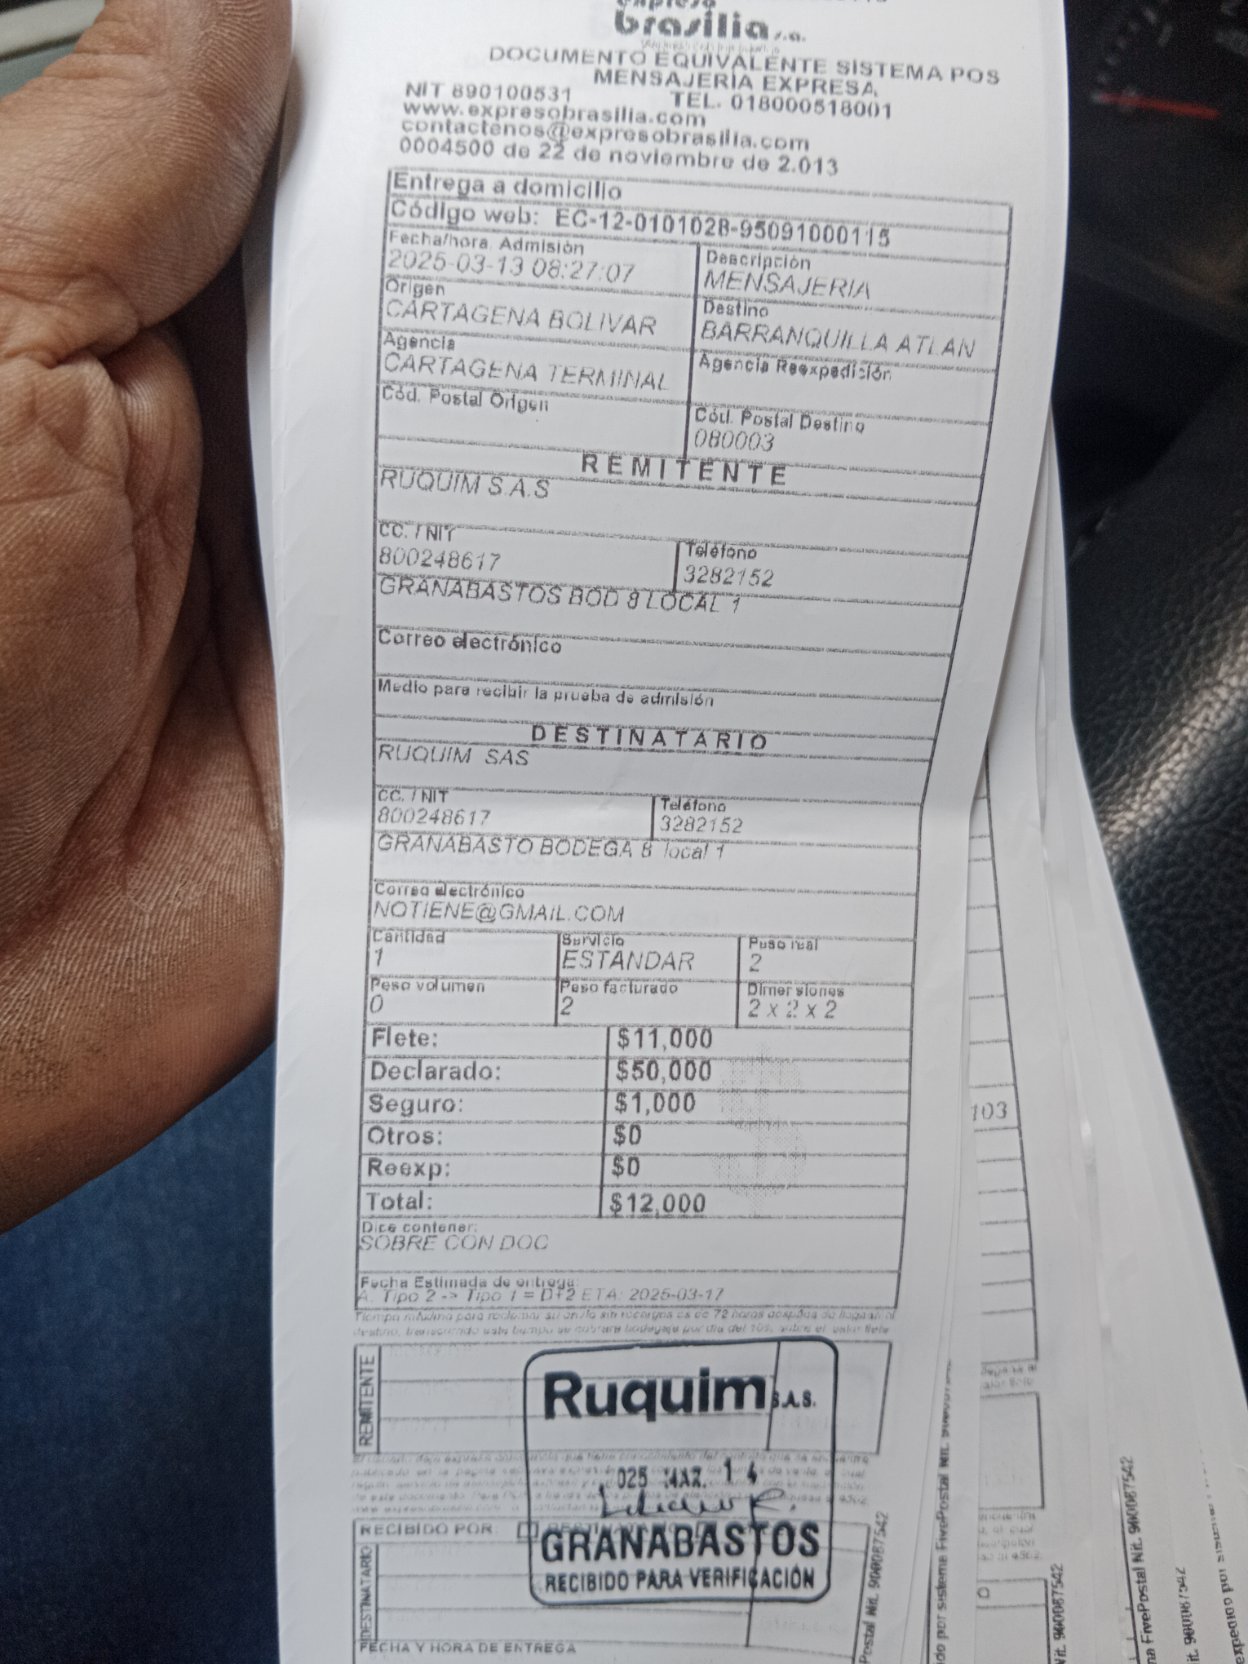 expreso
brasilia s.a.
DOCUMENTO EQUIVALENTE SISTEMA POS
MENSAJERIA EXPRESA
NIT 890100531 TEL. 018000518001
www.expresobrasilia.com
contactenos@expresobrasilia.com
0004500 de 22 de noviembre de 2.013
Entrega a domicilio
Código web: EC-12-0101028-95091000115
Fecha/hora. Admisión Descripción
2025-03-13 08:27:07 MENSAJERIA
Origen Destino
CARTAGENA BOLIVAR BARRANQUILLA ATLAN
Agencia Agencia Reexpedición
CARTAGENA TERMINAL
Cód. Postal Origen Cód. Postal Destino
080003
REMITENTE
RUQUIM S.A.S
CC. / NIT Teléfono
800248617 3282152
GRANABASTOS BOD 8 LOCAL 1
Correo electrónico
Medio para recibir la prueba de admisión
DESTINATARIO
RUQUIM SAS
CC. / NIT Teléfono
800248617 3282152
GRANABASTO BODEGA 8 local 1
Correo electrónico
NOTIENE@GMAIL.COM
Cantidad Servicio Peso real
1 ESTANDAR 2
Peso volumen Peso facturado Dimensiones
0 2 2 x 2 x 2
Flete: $11,000
Declarado: $50,000
Seguro: $1,000
Otros: $0
Reexp: $0
Total: $12,000
Dice contener:
SOBRE CON DOC
Fecha Estimada de entrega:
A. Tipo 2 -> Tipo 1 = D+2 ETA: 2025-03-17
REMITENTE
Ruquim S.A.S.
025 MAR. 14
GRANABASTOS
RECIBIDO PARA VERIFICACIÓN
RECIBIDO POR:
DESTINATARIO
FECHA Y HORA DE ENTREGA
Postal Nit. 900087542
103
do por sistema FivePostal Nit.
Nit. 900087542
na FivePostal Nit. 900087542
it. 900087542
expedido por